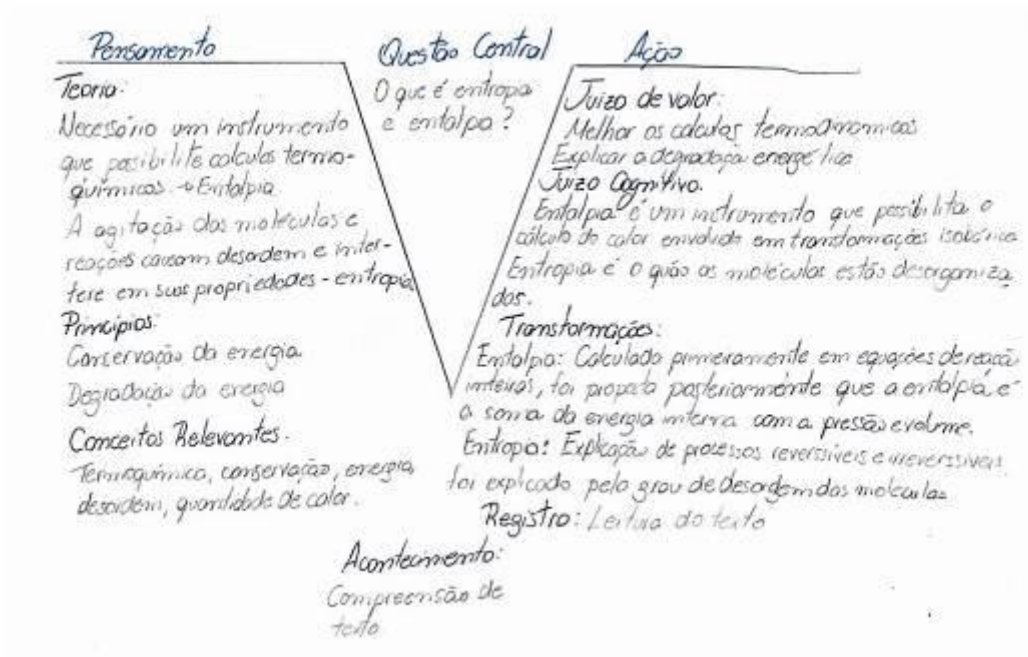 Pensamento
Teoria:
Necessário um instrumento
que possibilite calculos termo-
químicos → Entalpia
A agitação das moléculas e
reações causam desordem e inter-
fere em suas propriedades - entropia
Princípios:
Conservação da energia
Degradação da energia
Conceitos Relevantes.
Termoquímica, conservação, energia
desordem, quantidade de calor.
Questão Central
O que é entropia
e entalpia?
Ação
Juízo de valor:
Melhor os calculos termodinamicos
Explicar a degradação energética
Juízo Cognitivo.
Entalpia é um instrumento que possibilita o
cálculo do calor envolvido em transformações isobáricas
Entropia é o quão as moléculas estão desorganiza
das.
Transformações:
Entalpia: Calculada primeiramente em equações de reação
inteiras, foi proposta posteriormente que a entalpia é
a soma da energia interna com a pressão e volume.
Entropia: Explicação de processos reverssíveis e irreverssíveis
foi explicado pelo grau de desordem das moleculas
Registro: Leitura do texto
Acontecimento:
Compreensão de
texto